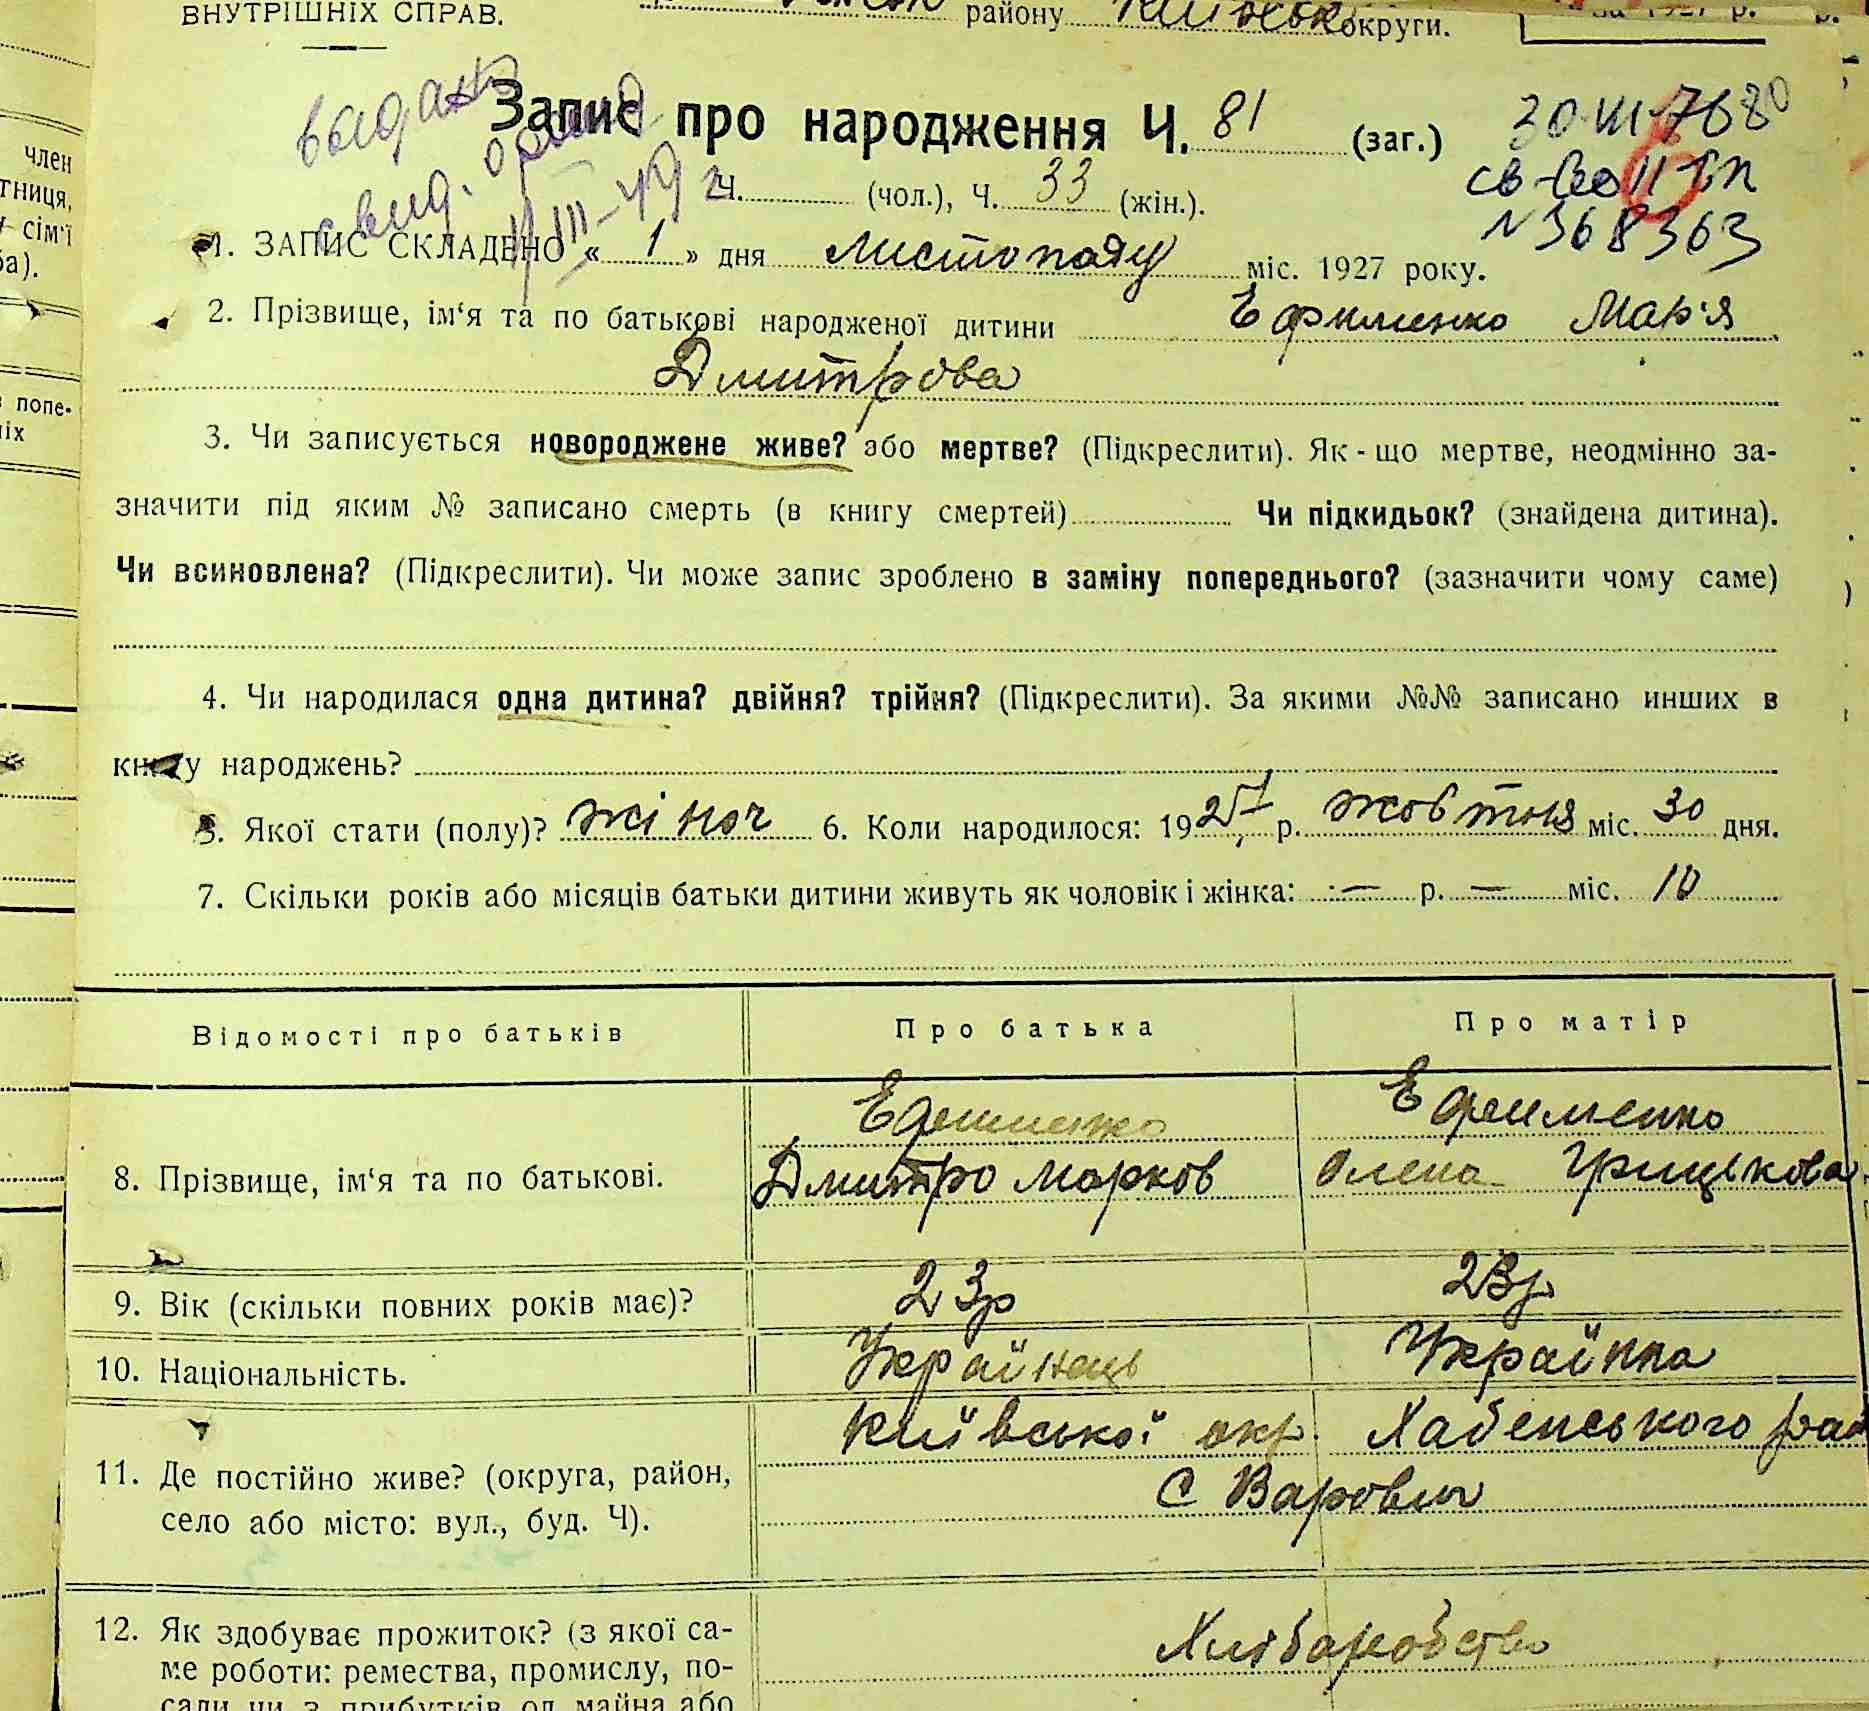 ВНУТРІШНІХ СПРАВ.
району Київськ округи.
за 1927 р.
видано
свид.
III-49 г
Запис про народження Ч. 81 (заг.)
Ч. (чол.), Ч. 33 (жін.).
N 368363
1. ЗАПИС СКЛАДЕНО « 1 » дня листопаду міс. 1927 року.
2. Прізвище, ім‘я та по батькові народженої дитини Ефименко Мар'я
Дмитрова
3. Чи записується новороджене живе? або мертве? (Підкреслити). Як-що мертве, неодмінно за-
значити під яким № записано смерть (в книгу смертей) Чи підкидьок? (знайдена дитина).
Чи всиновлена? (Підкреслити). Чи може запис зроблено в заміну попереднього? (зазначити чому саме)
4. Чи народилася одна дитина? двійня? трійня? (Підкреслити). За якими №№ записано инших в
книгу народжень?
5. Якої стати (полу)? жіноч 6. Коли народилося: 1927 р. жовтня міс. 30 дня.
7. Скільки років або місяців батьки дитини живуть як чоловік і жінка: — р. — міс. 10
Відомості про батьків Про батька Про матір
Ефименко Ефименко
8. Прізвище, ім‘я та по батькові. Дмитро Марков Олена Грицькова
9. Вік (скільки повних років має)? 23р 23р
10. Національність. Українець Українка
Київської окр. Хабенського рай
11. Де постійно живе? (округа, район,
село або місто: вул., буд. Ч). С Варовичі
12. Як здобуває прожиток? (з якої са-
ме роботи: ремества, промислу, по- Хліборобство
сади чи з прибутків од майна або
член
тниця,
у сім‘ї
ба).
в попе-
ніх